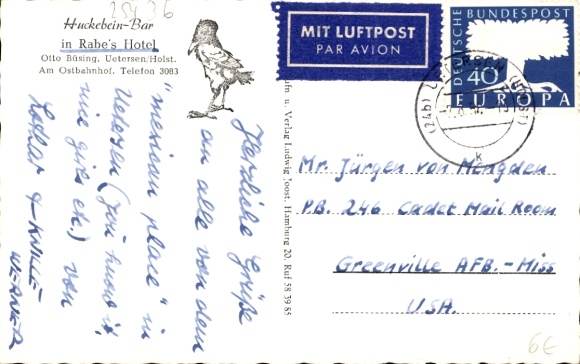 25436
Huckebein-Bar
in Rabe's Hotel
Otto Büsing, Uetersen/Holst.
Am Ostbahnhof. Telefon 3083
MIT LUFTPOST
PAR AVION
DEUTSCHE BUNDESPOST
40
EUROPA
(24b)
k
Herzliche Grüße
an alle von dem
"mexican place" in
Uetersen (you know it,
nie gibs etc.) von
Lothar
WERNER
u. Verlag Ludwig Joost, Hamburg 20, Ruf 58 39 85
Mr. Jürgen von Mengden
P.B. 246 Cadet Mail Room
Greenville AFB.-Miss
USA.
6€